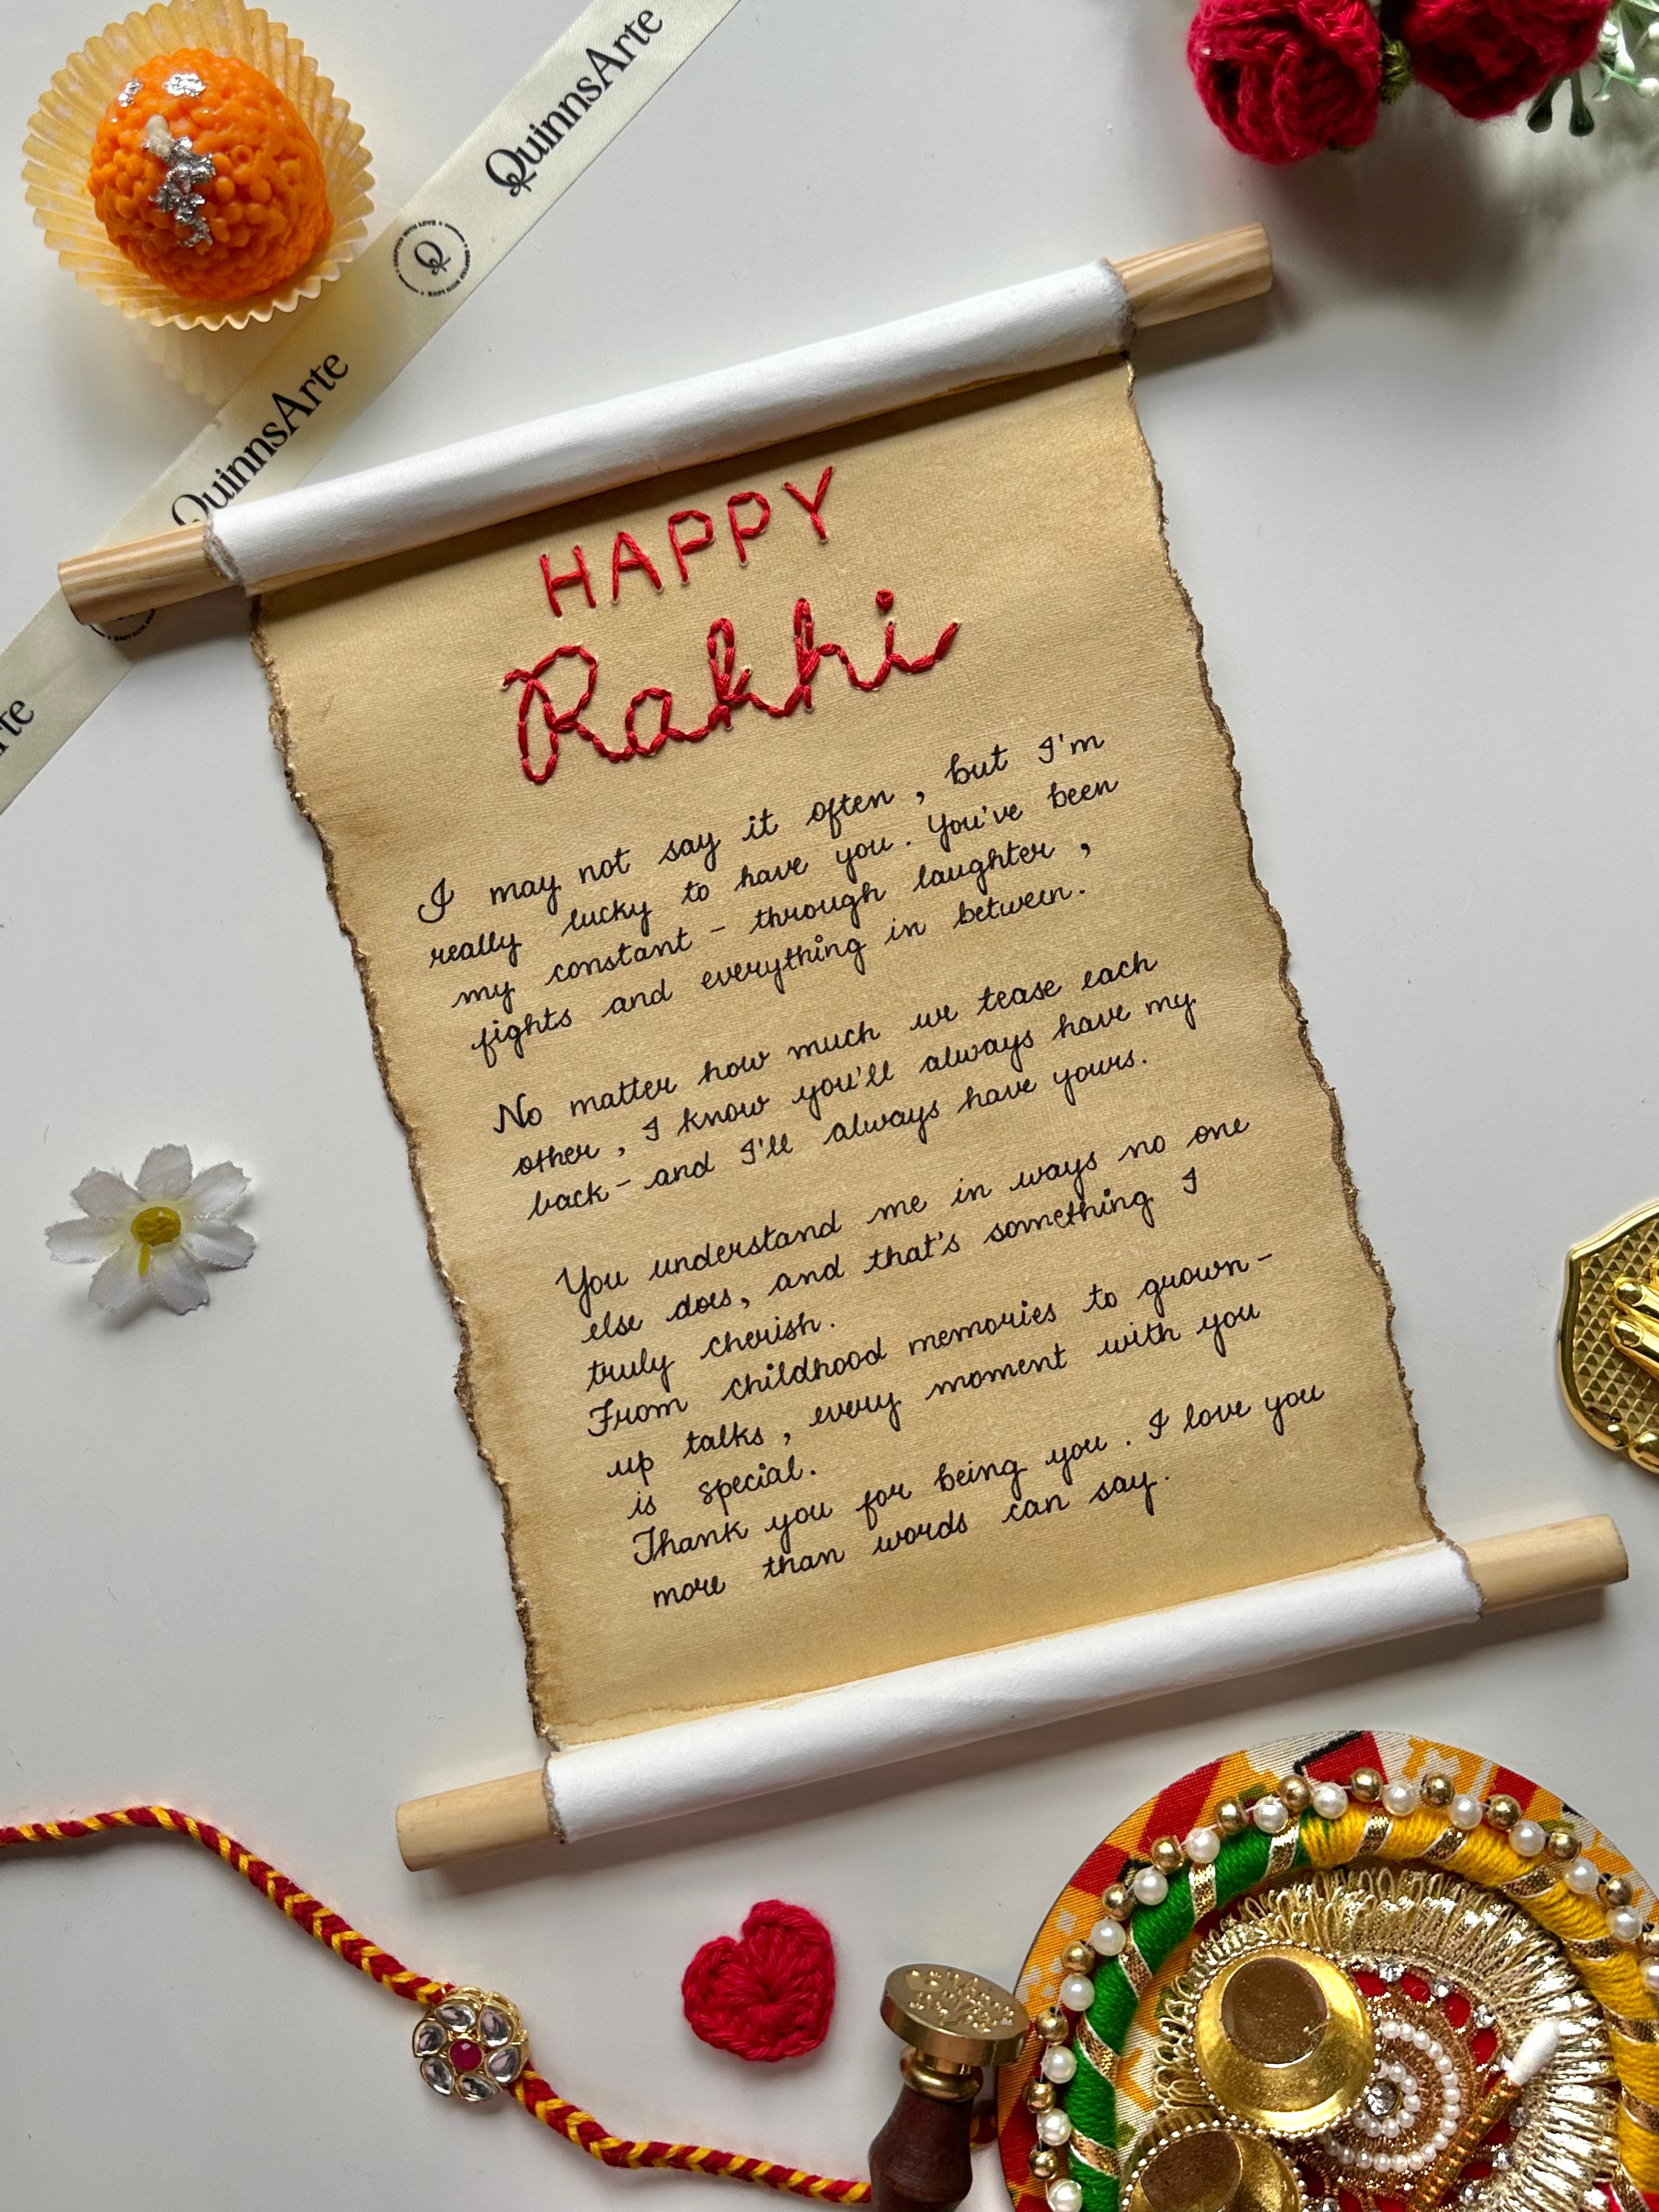 QuinnsArte
Q
QuinnsArte
rte
HAPPY
Rakhi
I may not say it often, but I'm
really lucky to have you. You've been
my constant - through laughter,
fights and everything in between.
No matter how much we tease each
other, I know you'll always have my
back - and I'll always have yours.
You understand me in ways no one
else does, and that's something I
truly cherish.
From childhood memories to grown-
up talks, every moment with you
is special.
Thank you for being you. I love you
more than words can say.